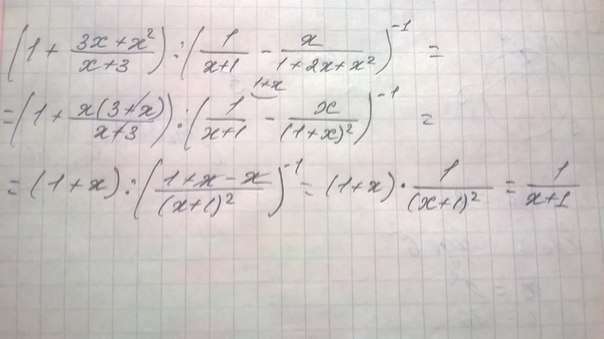 (1 + (3x + x²)/(x + 3)) : (1/(x+1) − x/(1 + 2x + x²))⁻¹ =
= (1 + x(3 + x)/(x + 3)) : (1/(x+1) (1+x − x/(1+x)²)⁻¹ =
= (1 + x) : ((1 + x − x)/(x+1)²)⁻¹ = (1+x) · 1/(x+1)² = 1/(x+1)